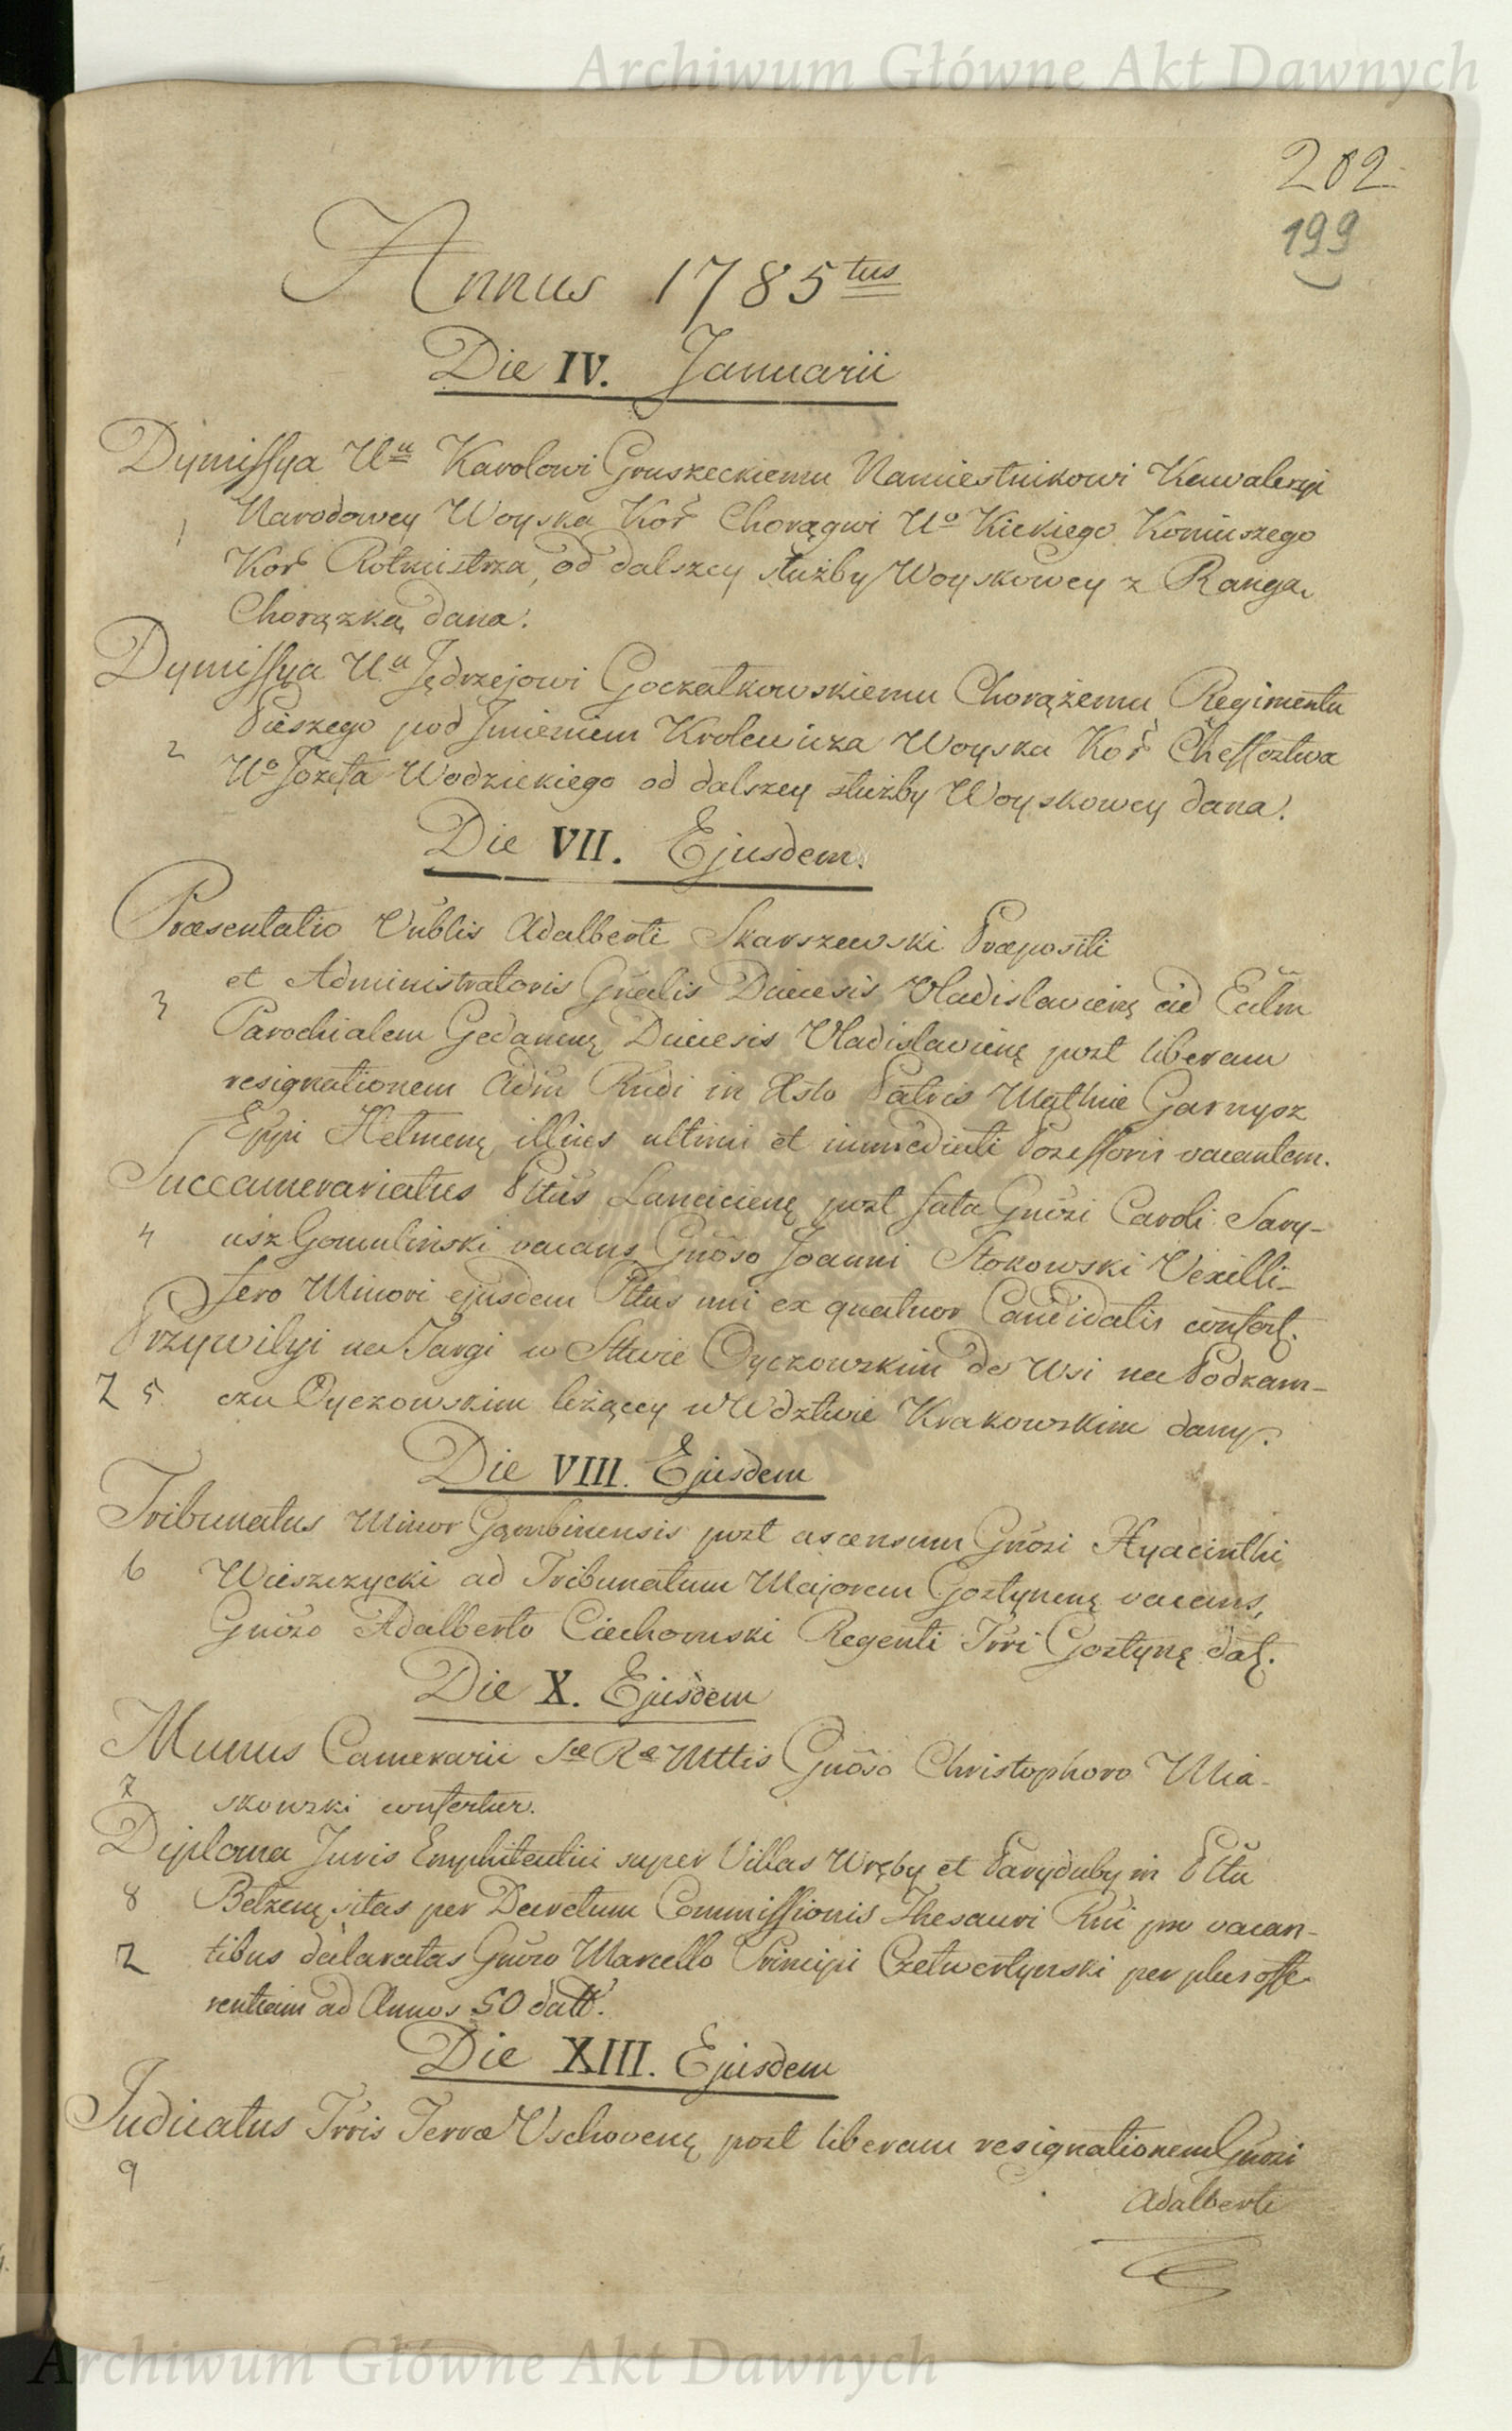 Archiwum Główne Akt Dawnych
202
199
Annus 1785tus
Die IV. Januarii
Dymissya Uu Karolowi Gruszeckiemu Namiestnikowi Kawaleryi
1 Narodowey Woyska Kor̃ Chorągwi Uo Kickiego Koniuszego
Kor̃ Rotmistrza, od dalszey służby Woyskowey z Rangą
Chorązką dana.
Dymissya Uu Jędrzejowi Goczałkowskiemu Chorążemu Regimentu
Pieszego pod Jmieniem Krolewicza Woyska Kor̃ Cheffoztwa
2 Uo Jozefa Wodzickiego od dalszey służby Woyskowey dana.
Die VII. Ejusdem.
Præsentatio Vnblis Adalberti Skarszewski Præpositi
et Administratoris Gñalis Diæcesis Vladislavienę ad Ecclm
3 Parochialem Gedanenę Diæcesis Vladislavienę post liberam
resignationem Adm̃ Rñdi in Xsto Patris Mathiæ Garnysz
Eppi Helmenę illius ultimi et immediati Possessoris vacantem.
Succamerariatus Pttus Lancicienę post fata Gnõsi Caroli Sary-
4 usz Gomuliński vacans Gnõso Joanni Stokowski Vexilli-
fero Minori ejusdem Pttus uni ex quatuor Candidatis confert.
Przywilyi na Targi w Sttwie Oyczowskim de Wsi na Podzam-
2 5 czu Oyczowskim leżącey w Wdztwie Krakowskim dany.
Die VIII. Ejusdem
Tribunatus Minor Gąmbinensis post ascensum Gnõsi Hyacinthi
6 Wieszczycki ad Tribunatum Majorem Gostynenę vacans,
Gnõso Adalberto Ciechomski Regenti Trri Gostynę dat.
Die X. Ejusdem
Munus Camerarii Sæ Ræ Mttis Gnõso Christophoro Mia-
7 skowski confertur.
Diploma Juris Emphiteutici super Villas Wręby et Paryduby in Pttu
8 Belzenę sitas per Decretum Commissionis Thesauri Rñi pro vacan-
2 tibus declaratas Gnõso Marcello Principi Czetwertynski per plus offe-
rentiam ad Annos 50 datt.
Die XIII. Ejusdem
Judicatus Trris Terræ Vschovenę post liberam resignationem Gnõsi
9
Adalberti
Archiwum Główne Akt Dawnych